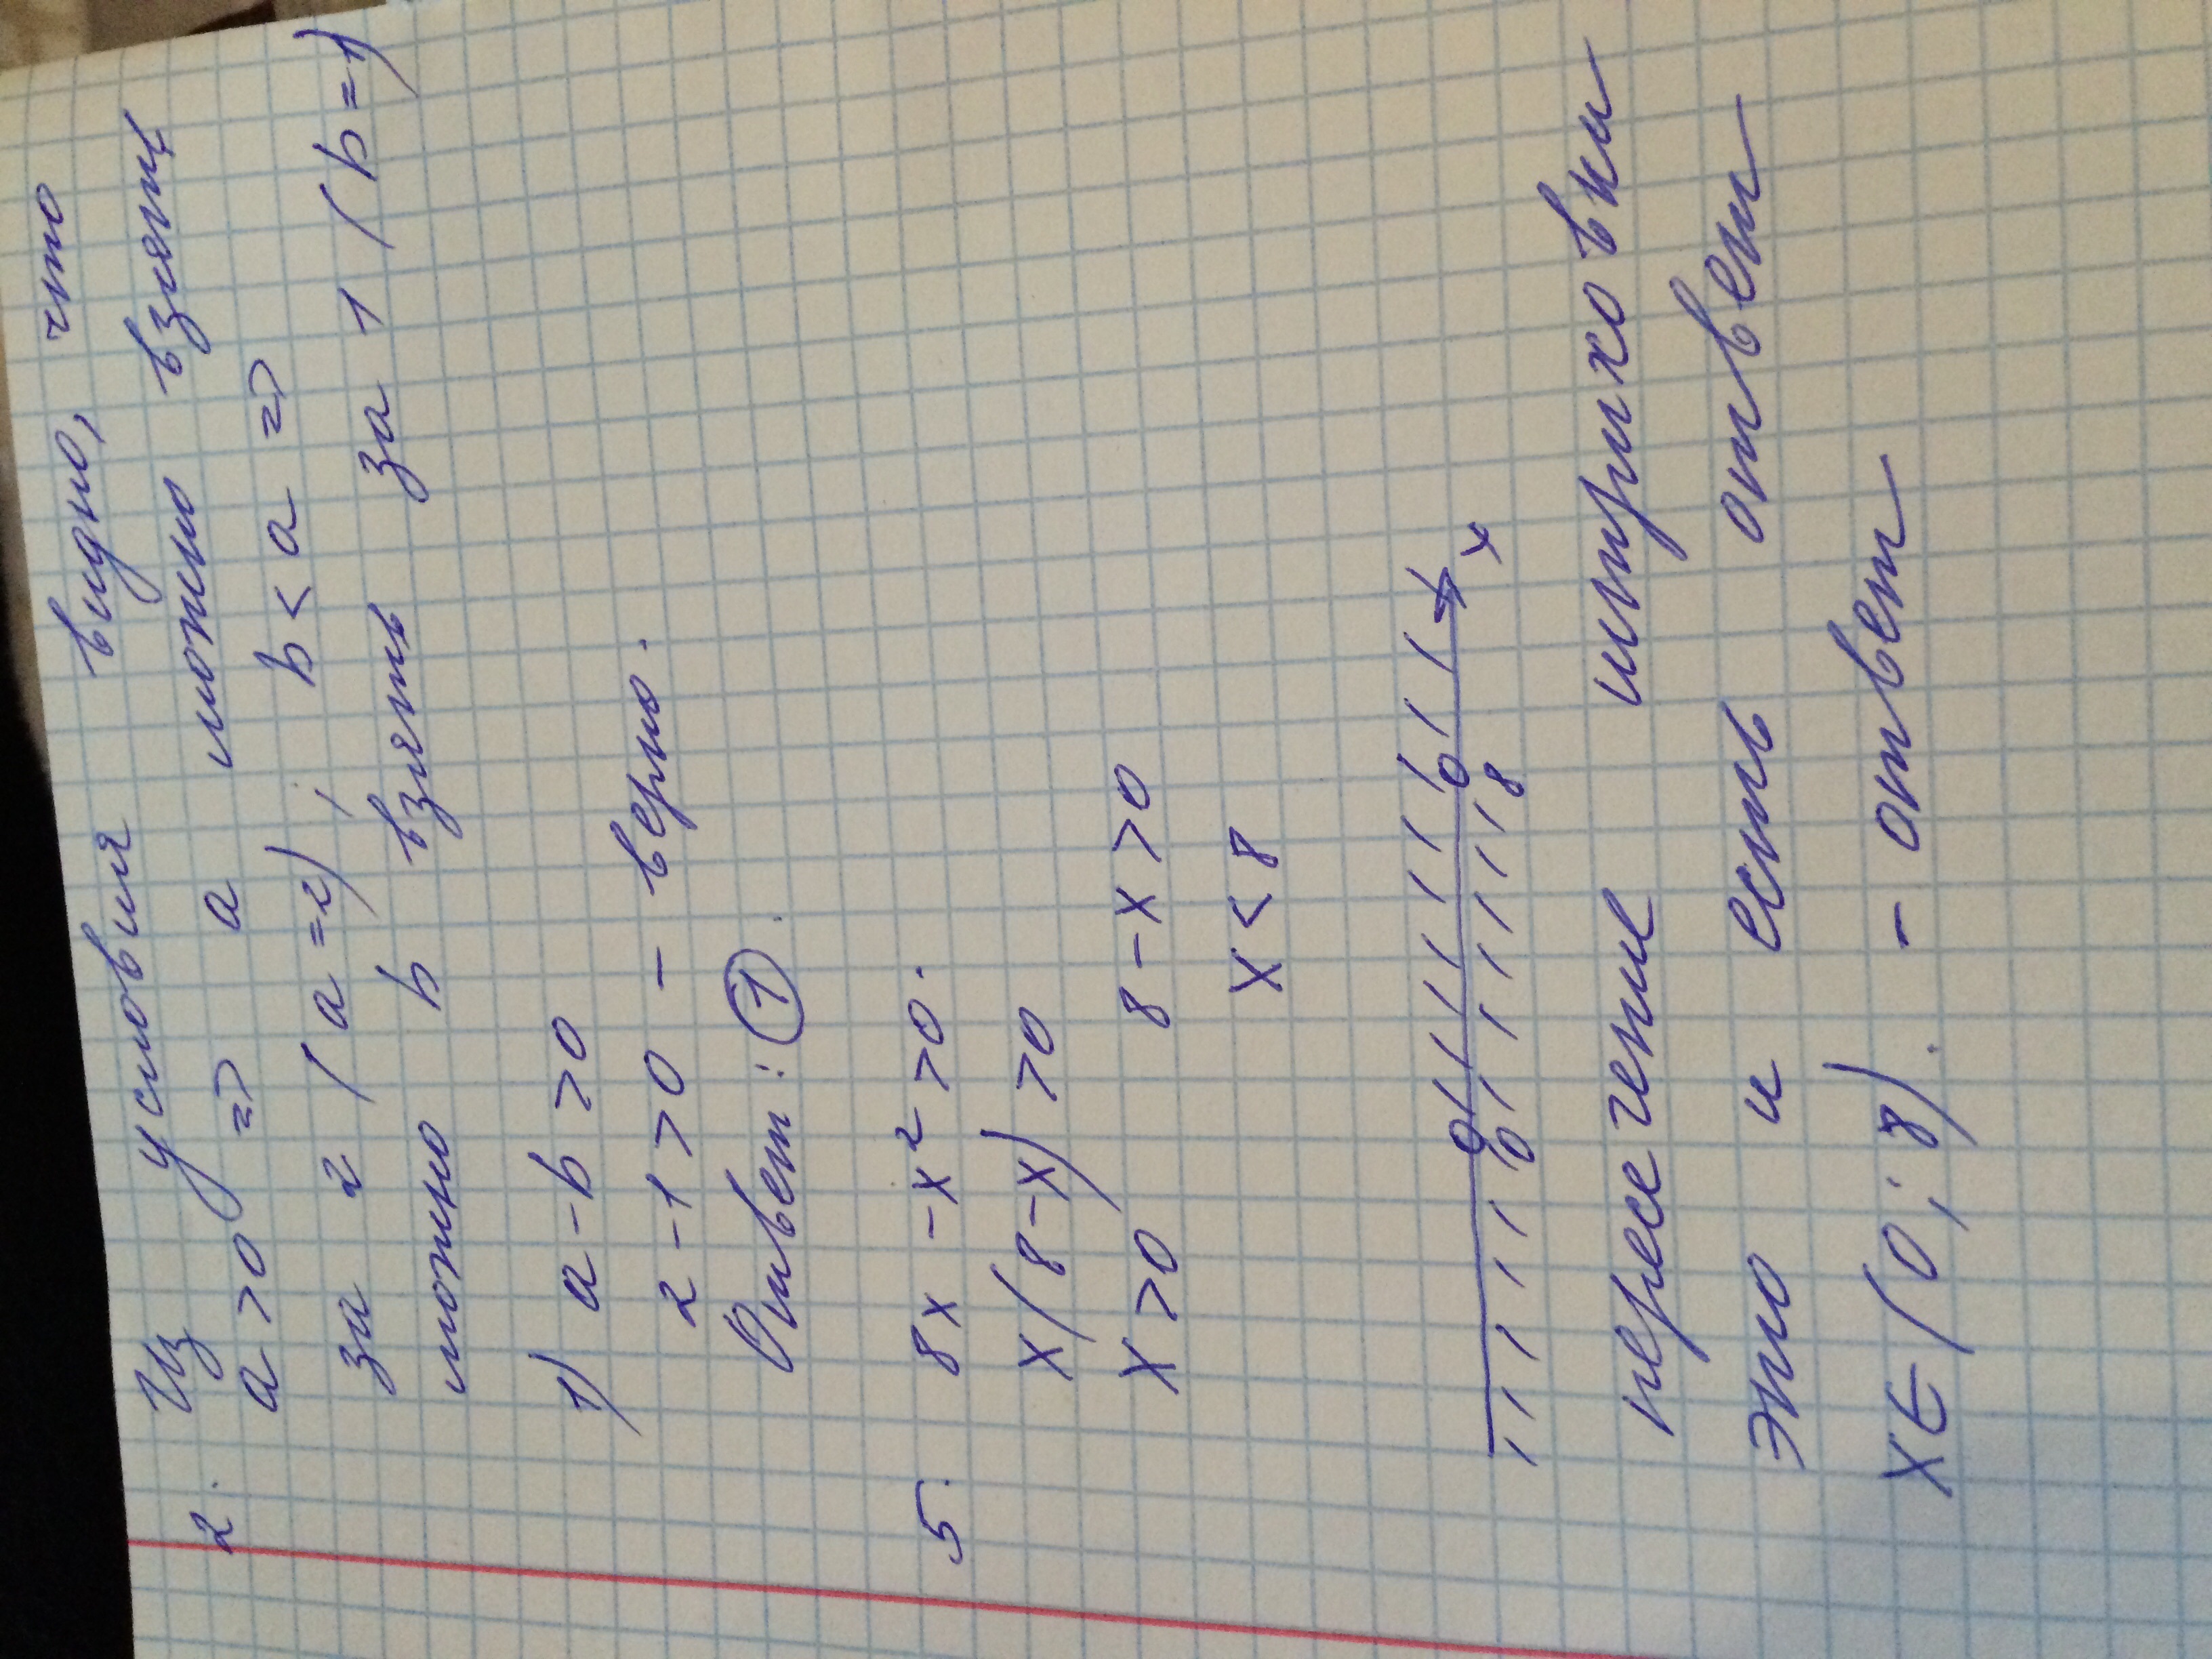 2. Из условия видно, что
a > 0 => a можно взять
за 2 (a = 2); b < a =>
можно b взять за 1 (b = 1)
1) a - b > 0
2 - 1 > 0 - верно.
Ответ: 1.
5. 8x - x² > 0.
x(8 - x) > 0
x > 0 8 - x > 0
x < 8
0 8 x
пересечение штриховки
это и есть ответ
x ∈ (0; 8). - ответ